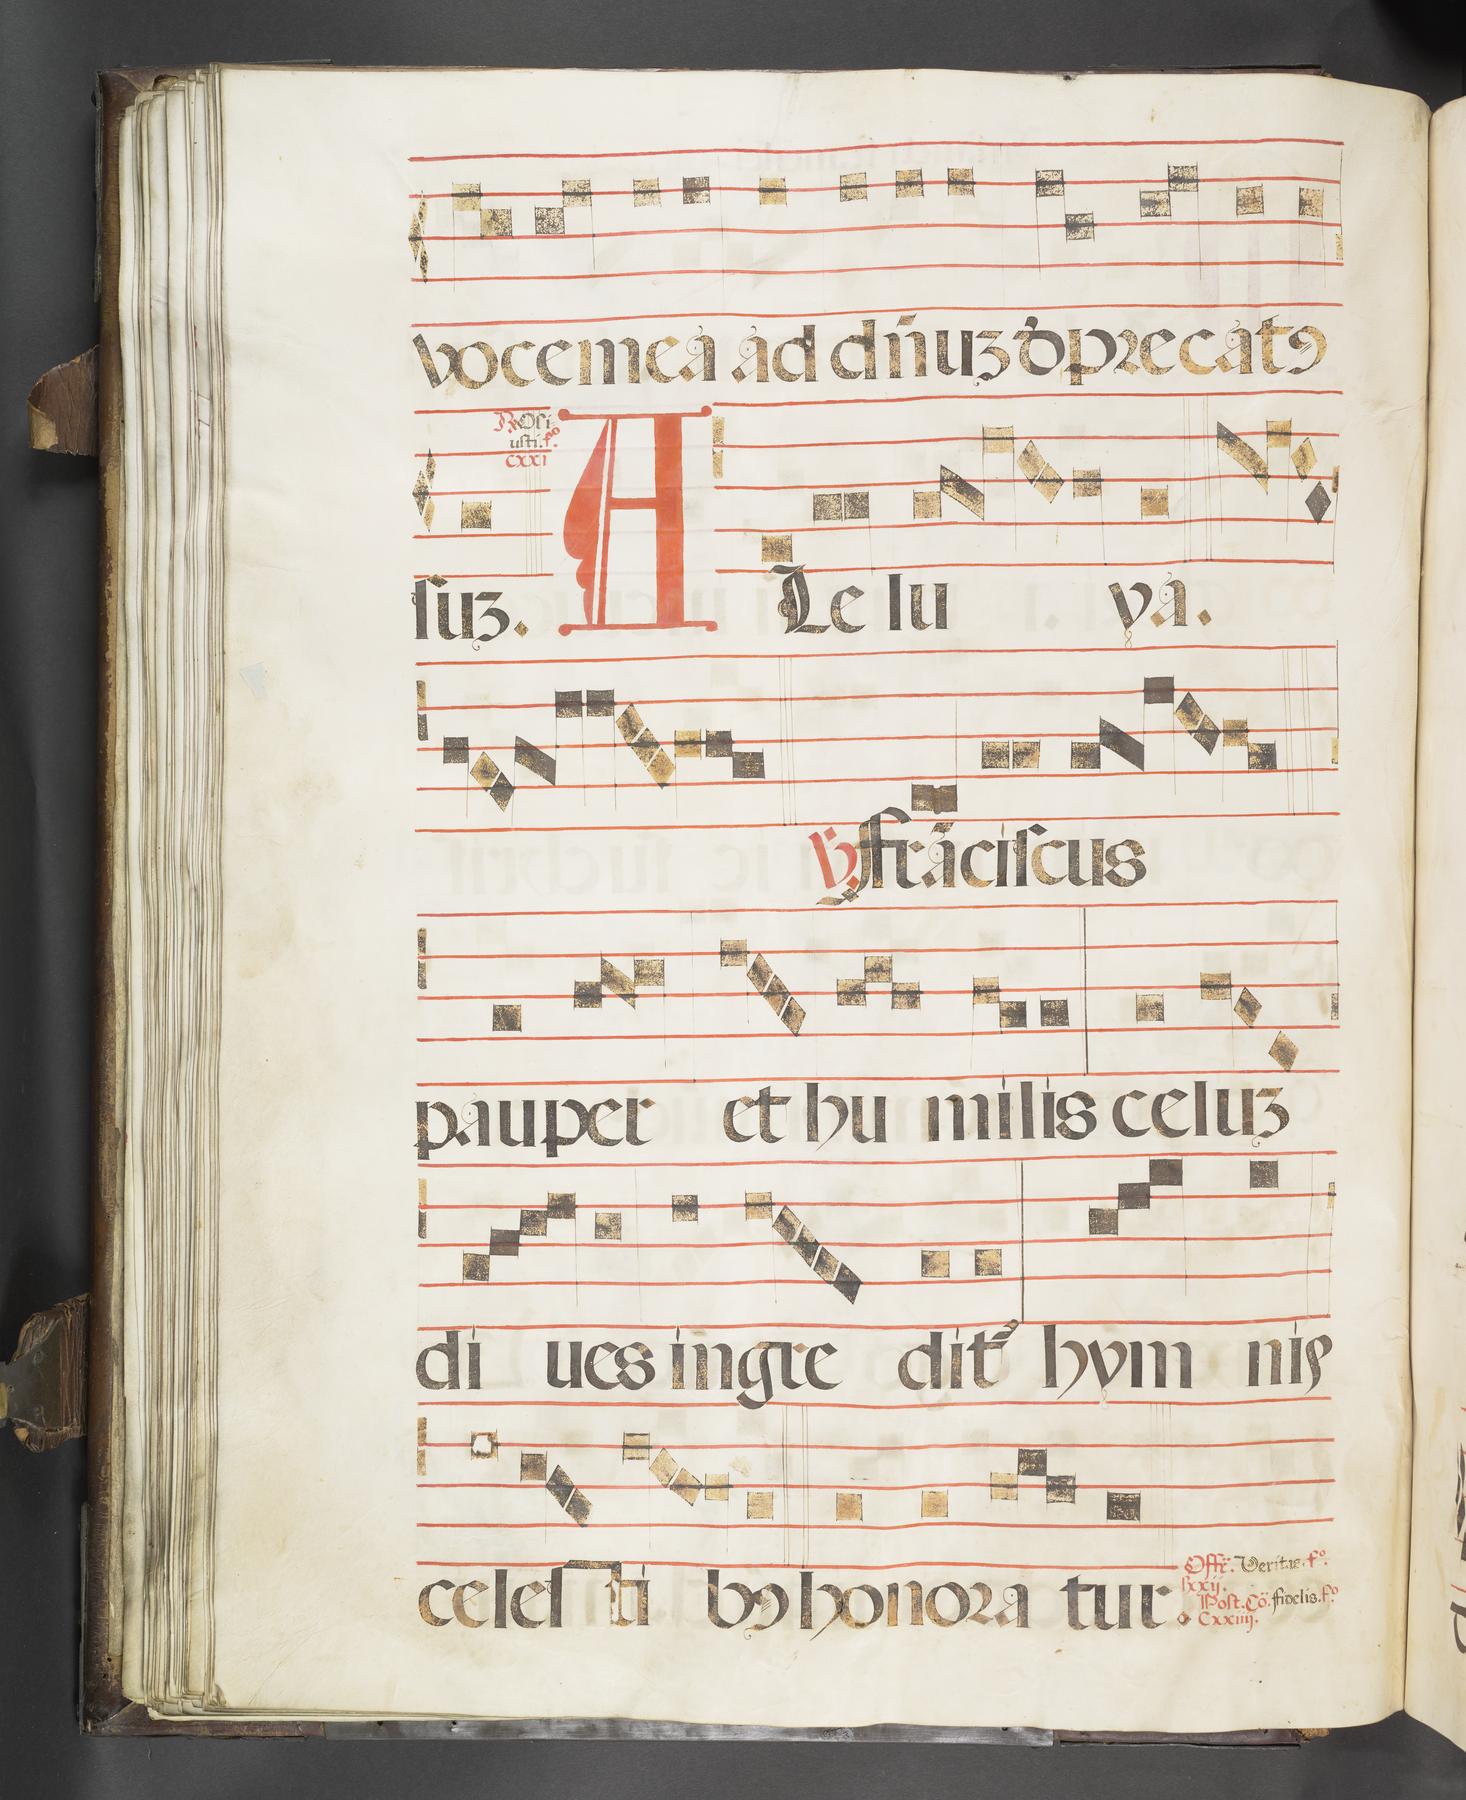 voce mea ad dñuz dprecatꝯ
R. Os i
usti. fo
cxxi
suz. A Le lu ya.
V. ffrāciscus
pauper et hu milis celuz
di ues ingre dit᷑ hym nis
celes ti bꝯ honora tur.
Offr. Veritas. fo
Post. Cō. fidelis. fo
Cxxiiij.